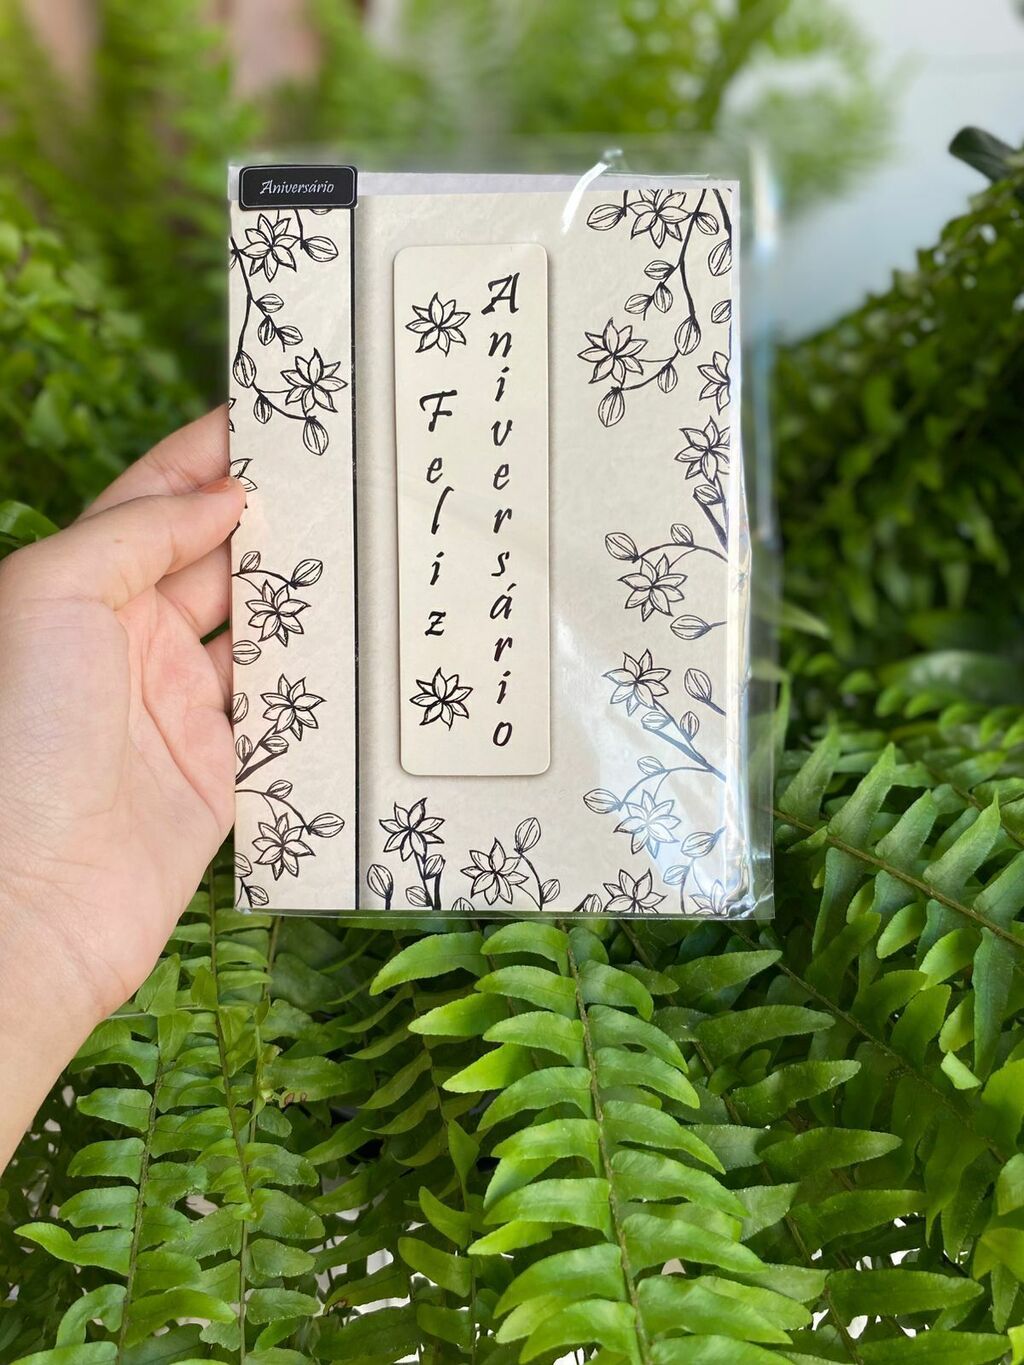 Aniversário
Feliz
Aniversário